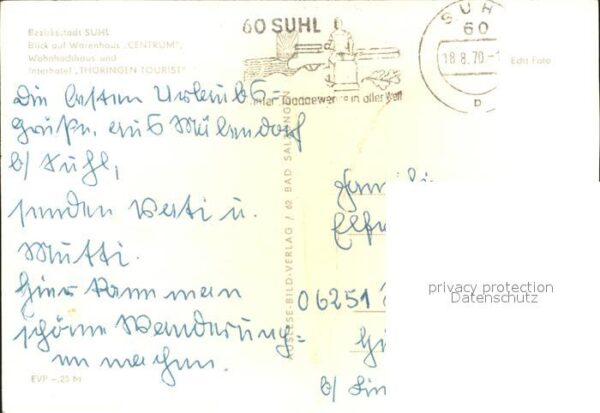 Bezirksstadt SUHL
Blick auf Warenhaus „CENTRUM",
Wohnhochhaus und
Interhotel „THÜRINGEN TOURIST"
60 SUHL
Jagdgewehre in aller Welt
SUHL
60
18.8.70
b
Echt Foto
Die besten Urlaubs-
grüße aus Mäbendorf
b/ Suhl,
senden Vati u.
Mutti.
Hier kann man
schöne Wanderung-
en machen.
EVP -,25 M
AUSLESE-BILD-VERLAG / 62 BAD SALZUNGEN
Familie
06251
b/
privacy protection
Datenschutz